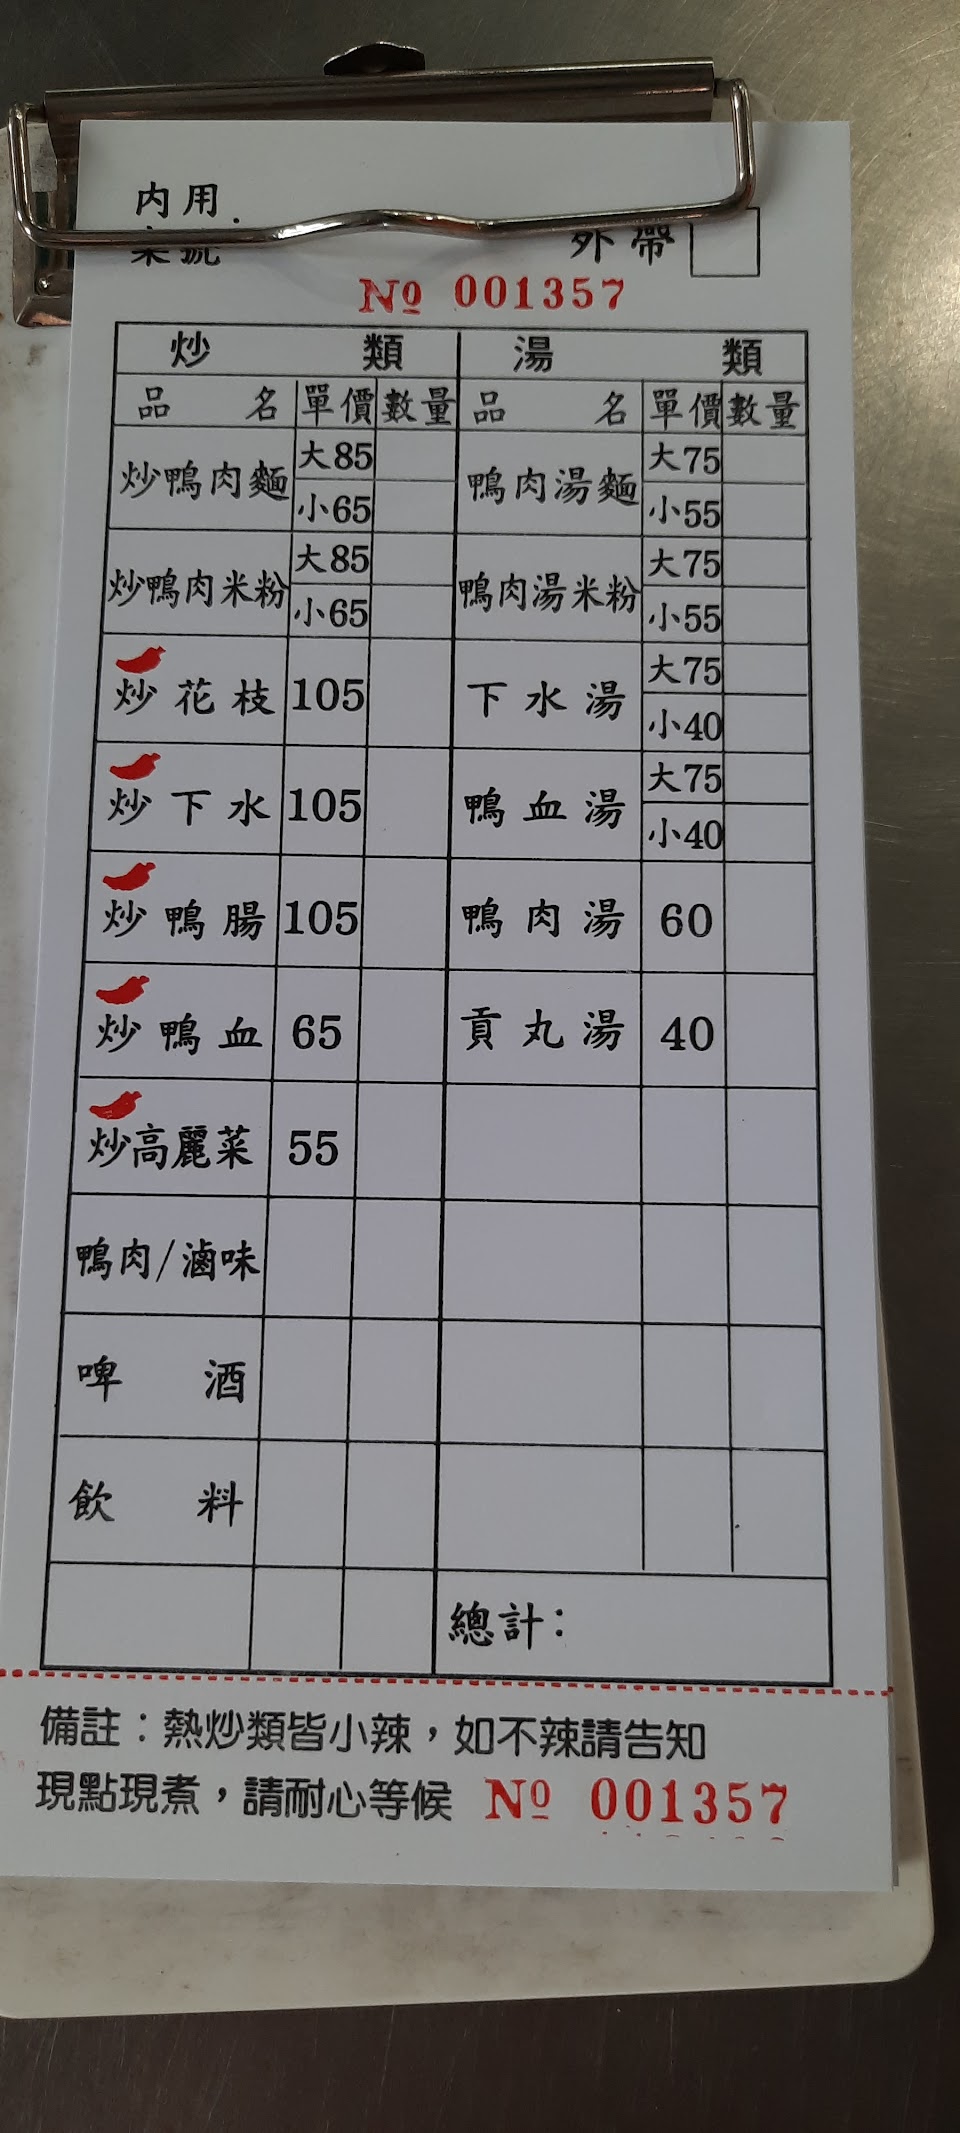 內用
桌號
外帶
№ 001357
炒類 湯類
品名 單價 數量 品名 單價 數量
炒鴨肉麵 大85 小65 鴨肉湯麵 大75 小55
炒鴨肉米粉 大85 小65 鴨肉湯米粉 大75 小55
炒花枝 105 下水湯 大75 小40
炒下水 105 鴨血湯 大75 小40
炒鴨腸 105 鴨肉湯 60
炒鴨血 65 貢丸湯 40
炒高麗菜 55
鴨肉/滷味
啤酒
飲料
總計：
備註：熱炒類皆小辣，如不辣請告知
現點現煮，請耐心等候 № 001357